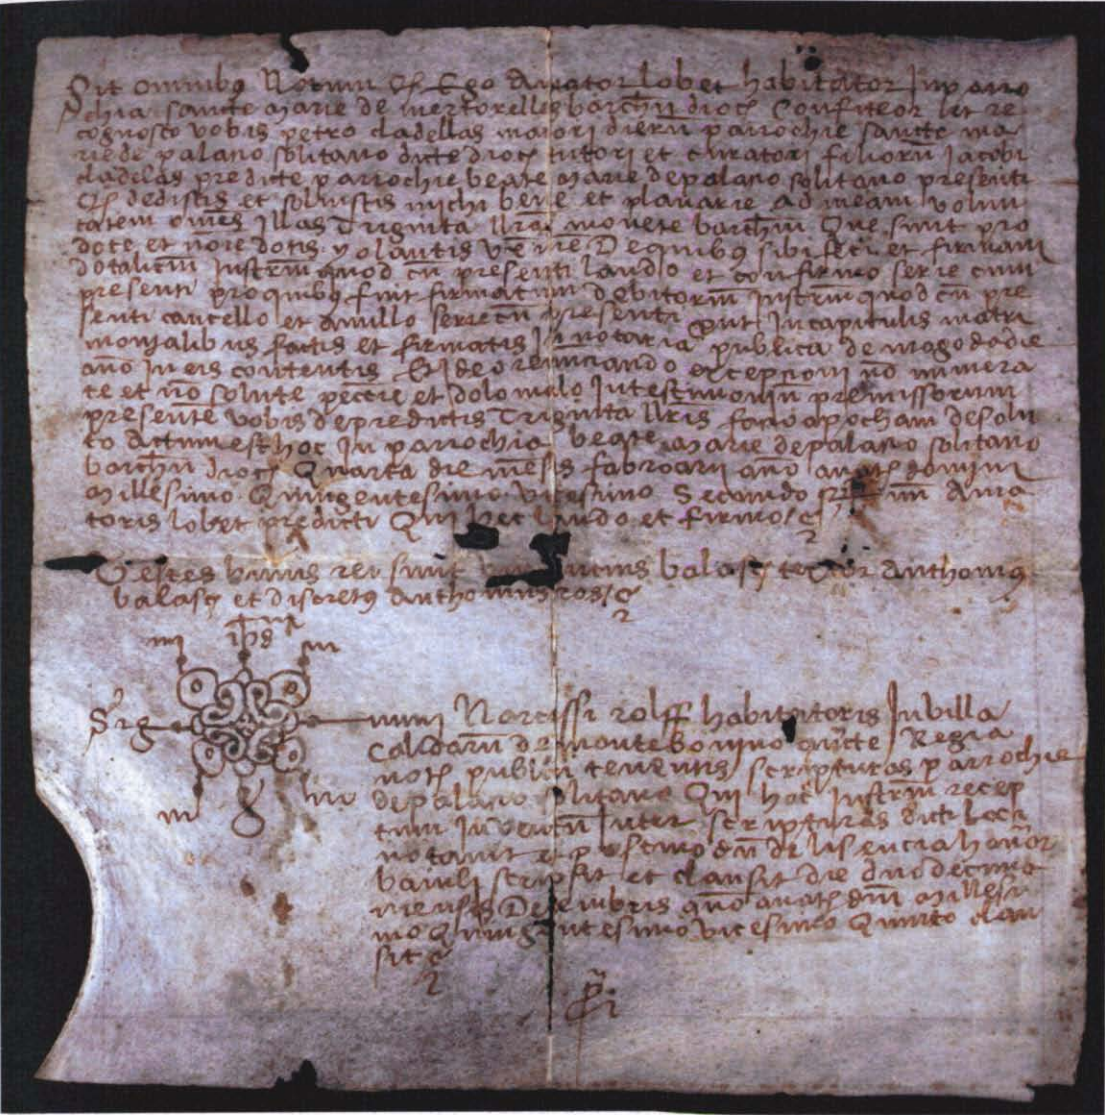 Sit omnibus Notum q Ego Amator lobet habitator In parro
chia sancte marie de mertorelles barchn dioc Confiteor et re
cognosco vobis petro cladellas maiori dierũ parrochie sancte ma
rie de palacio solitano dicte dioc tutori et curatori filiorũ Jacobi
cladelas predicte parrochie beate marie de palacio solitano presenti
q dedistis et solvistis michi bene et planarie ad meam volun
tatem omẽs Illas Triginta llrãs monete barchñ Que sunt pro
dote et nõie dotis De quibus sibi feci et firmavi
dotaliciũ Instrm quod cũ presenti laudo et confirmo serie cum
presenti pro quibus fuit firmatum debitoriũ Instrm quod cũ pre
senti cancello et anullo serie cũ presenti put In capitulis matri
monialibus factis et firmatis In notaria publica de mogoda die
año In eis contentis Et Ideo renunciando excepcioni nõ numera
te et nõ solute peccie et dolo malo In testimoniũ premissorum
presente vobis de predictis Triginta llris facio apocham de solu
to Actum est hoc In parrochia beate marie de palacio solitano
barchñ dioc Quarta die mẽsis febroarii año a natt domini
millesimo Quingentesimo vicesimo Secundo num Ama
toris lobet predicti Qui hec laudo et firmo
Testes huius rei sunt balasc textor Anthonius
balasc et discretus Anthonius ros
ihs
Sig num Narcissi rolff habitatoris In villa
Caldarũ de montebonino aucte Regia
nott publici tenentis scripturas parrochie
de palacio solitano Qui hoc Instrm recep
tum Inventũ Inter scripturas dicti
notavit et de lisencia honor
baiuli scripsit et clausit die duodecimo
mensis Desembris año a natt dñi millesi
mo Quingentesimo vicesimo Quinto clau
sit